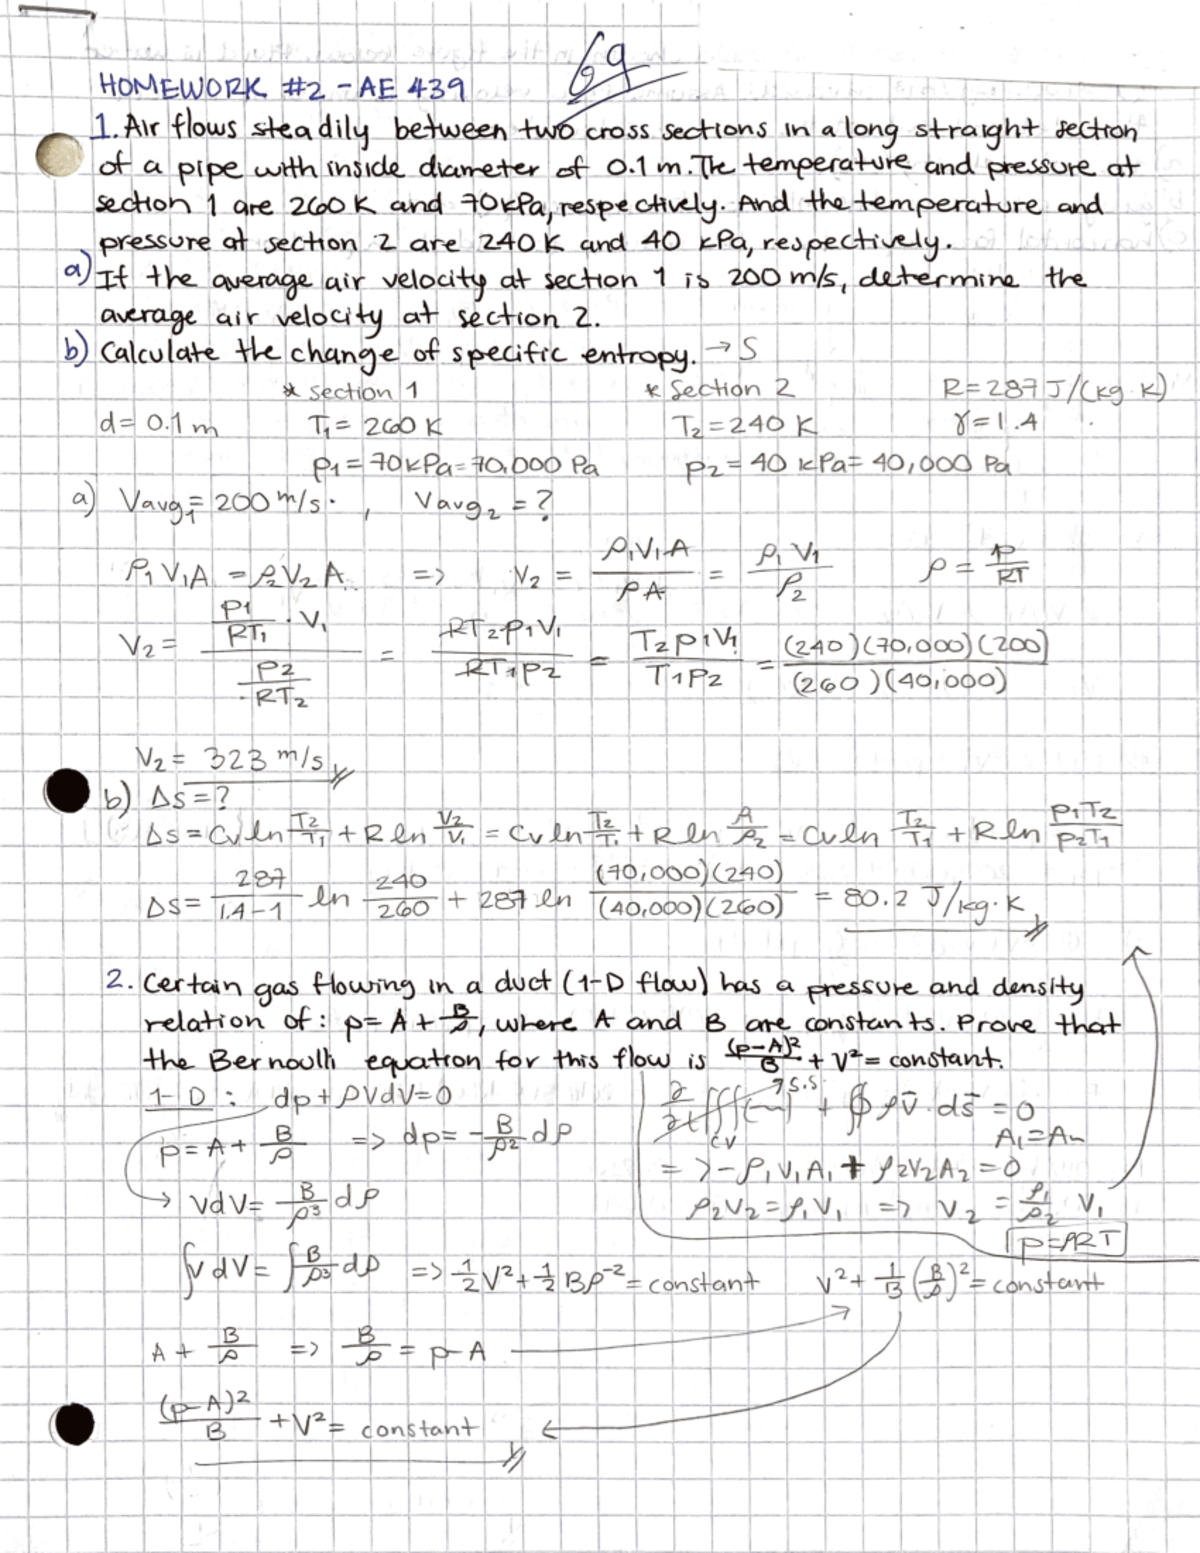 69
HOMEWORK #2 - AE 439
1. Air flows steadily between two cross sections in a long straight section
of a pipe with inside diameter of 0.1 m. The temperature and pressure at
section 1 are 260 K and 70 kPa, respectively. And the temperature and
pressure at section 2 are 240 K and 40 kPa, respectively.
a) If the average air velocity at section 1 is 200 m/s, determine the
average air velocity at section 2.
b) Calculate the change of specific entropy. → S
* section 1 * Section 2 R = 287 J/(kg·K)
d = 0.1 m T₁ = 260 K T₂ = 240 K γ = 1.4
p₁ = 70 kPa = 70,000 Pa p₂ = 40 kPa = 40,000 Pa
a) Vavg₁ = 200 m/s , Vavg₂ = ?
ρ₁V₁A = ρ₂V₂A => V₂ = ρ₁V₁A / ρA = ρ₁V₁ / ρ₂ ρ = p / RT
V₂ = (p₁/RT₁ · V₁) / (p₂/RT₂) = RT₂p₁V₁ / RT₁p₂ = T₂p₁V₁ / T₁p₂ = (240)(70,000)(200) / (260)(40,000)
V₂ = 323 m/s
b) Δs = ?
Δs = Cv ln T₂/T₁ + R ln V₂/V₁ = Cv ln T₂/T₁ + R ln ρ₁/ρ₂ = Cv ln T₂/T₁ + R ln p₁T₂/p₂T₁
Δs = 287/1.4-1 ln 240/260 + 287 ln (70,000)(240) / (40,000)(260) = 80.2 J/kg·K
2. Certain gas flowing in a duct (1-D flow) has a pressure and density
relation of: p = A + B/ρ, where A and B are constants. Prove that
the Bernoulli equation for this flow is (p-A)²/B + V² = constant.
1-D: dp + ρVdV = 0 ∂/∂t ∭(~) + ∯ ρv̄·ds̄ = 0
CV
→ s.s
p = A + B/ρ => dp = - B/ρ² dρ A₁ = A₂
=> -ρ₁V₁A₁ + ρ₂V₂A₂ = 0
VdV = B/ρ³ dρ ρ₂V₂ = ρ₁V₁ => V₂ = ρ₁/ρ₂ V₁
p = ρRT
∫VdV = ∫B/ρ³ dρ => ½V² + ½Bρ⁻² = constant V² + 1/B (B/ρ)² = constant
A + B/ρ => B/ρ = p-A
(p-A)²/B + V² = constant